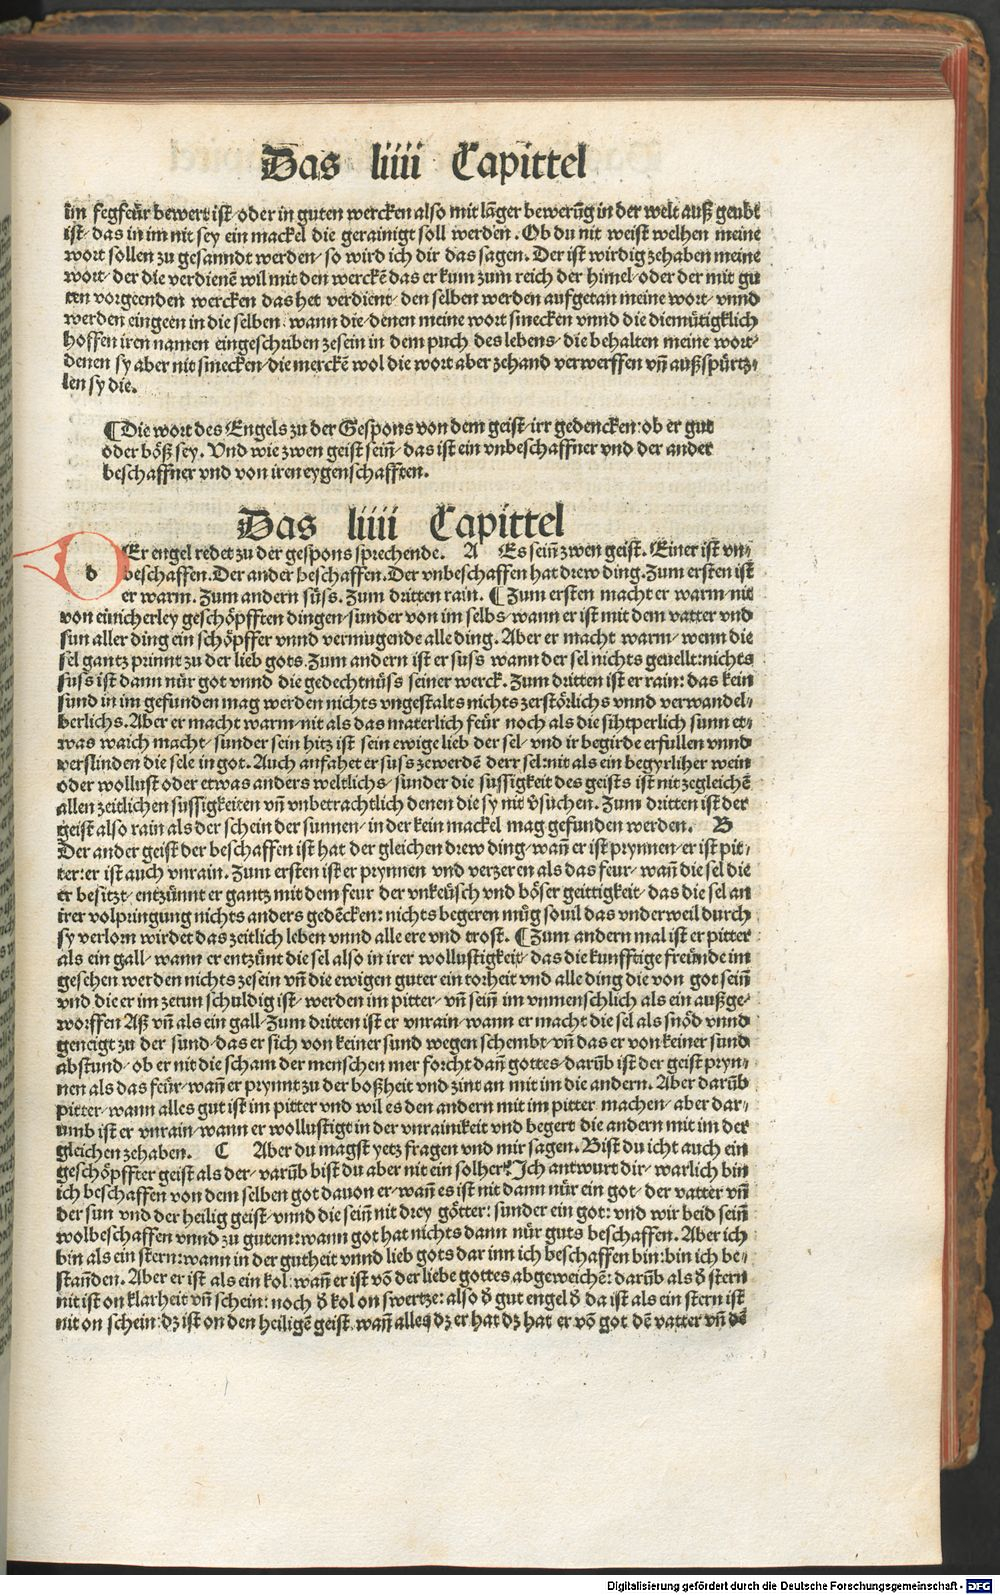 Das liiii Capittel
im fegfeür bewert ist/ oder in guten wercken also mit lãger bewerũg in der welt auß geubt
ist/ das in im nit sey ein mackel die gerainigt soll werden. Ob du nit weist welhen meine
wort sollen zu gesanndt werden/ so wird ich dir das sagen. Der ist wirdig zehaben meine
wort/ der die verdienẽ wil mit den werckẽ das er kum zum reich der himel/ oder der mit gu
ten vorgeenden wercken das het verdient/ den selben werden aufgetan meine wort/ vnnd
werden eingeen in die selben. wann die/ denen meine wort smecken vnnd die diemütigklich
hoffen iren namen eingeschriben zesein in dem puch des lebens/ die behalten meine wort/
denen sy aber nit smecken/ die merckẽ wol die wort aber zehand verwerffen vñ außspürtz/
len sy die.
¶ Die wort des Engels zu der Gespons von dem geist/ irr gedencken: ob er gut
oder böß sey. Vnd wie zwen geist seiñ/ das ist ein vnbeschaffner vnd der ander
beschaffner vnd von iren eygenschafften.
Das liiii Capittel
d Er engel redet zu der gespons sprechende. A Es seiñ zwen geist. Einer ist vn/
beschaffen. Der ander beschaffen. Der vnbeschaffen hat drew ding. Zum ersten ist
er warm. Zum andern süss. Zum dritten rain. ¶ Zum ersten macht er warm nit
von einicherley geschöpfften dingen/ sunder von im selbs/ wann er ist mit dem vatter vnd
sun aller ding ein schöpffer vnnd vermugende alle ding. Aber er macht warm/ wenn die
sel gantz prinnt zu der lieb gots. Zum andern ist er suss wann der sel nichts geuellt: nichts
suss ist dann nür got vnnd die gedechtnüss seiner werck. Zum dritten ist er rain: das kein
sund in im gefunden mag werden nichts vngestalts nichts zerstörlichs vnnd verwandel/
berlichs. Aber er macht warm/ nit als das materlich feür noch als die sihtperlich sunn et/
was waich macht/ sunder sein hitz ist sein ewige lieb der sel/ vnd ir begirde erfullen vnnd
verslinden die sele in got. Auch anfahet er suss zewerdẽ derr sel: nit als ein begyrliher wein
oder wollust oder etwas anders weltlichs/ sunder die sussigkeit des geists ist nit zegleichẽ
allen zeitlichen sussigkeiten vñ vnbetrachtlich denen die sy nit v̉suchen. Zum dritten ist der
geist also rain als der schein der sunnen/ in der kein mackel mag gefunden werden. B
Der ander geist der beschaffen ist hat der gleichen drew ding/ wañ er ist prynnen/ er ist pit/
ter: er ist auch vnrain. Zum ersten ist er prynnen vnd verzeren als das feur/ wañ die sel die
er besitzt/ entzünnt er gantz mit dem feur der vnkeüsch vnd böser geittigkeit/ das die sel an
irer volpringung nichts anders gedẽcken: nichts begeren müg souil das vnderweil durch
sy verlorn wirdet das zeitlich leben vnnd alle ere vnd trost. ¶ Zum andern mal ist er pitter
als ein gall/ wann er entzünt die sel also in irer wollustigkeit/ das die kunfftige freünde im
gesehen werden nichts zesein vñ die ewigen guter ein torheit vnd alle ding die von got seiñ
vnd die er im zetun schuldig ist/ werden im pitter/ vñ seiñ im vnmenschlich als ein außge/
worffen Aß vñ als ein gall/ Zum dritten ist er vnrain/ wann er macht die sel als snöd vnnd
geneigt zu der sund/ das er sich von keiner sund wegen schembt/ vñ das er von keiner sund
abstund/ ob er nit die scham der menschen mer forcht dañ gottes/ darũb ist der geist pryn/
nen als das feür/ wañ er prynnt zu der boßheit vnd zint an mit im die andern. Aber darũb
pitter/ wann alles gut ist im pitter vnd wil es den andern mit im pitter machen/ aber dar/
umb ist er vnrain/ wann er wollustigt in der vnrainikeit vnd begert die andern mit im der
gleichen zehaben. C Aber du magst yetz fragen vnd mir sagen. Bist du icht auch ein
geschöpffter geist als der/ varũb bist du aber nit ein solher? Ich antwurt dir/ warlich bin
ich beschaffen von dem selben got dauon er/ wañ es ist nit dann nür ein got/ der vatter vñ
der sun vnd der heilig geist/ vnnd die seiñ nit drey götter: sunder ein got: vnd wir beid seiñ
wolbeschaffen vnnd zu gutem: wann got hat nichts dann nür guts beschaffen. Aber ich
bin als ein stern: wann in der gutheit vnnd lieb gots dar inn ich beschaffen bin: bin ich be/
stañden. Aber er ist als ein kol: wañ er ist võ der liebe gottes abgewichẽ: darũb als d̉ stern
nit ist on klarheit vñ schein: noch d̉ kol on swertze: also d̉ gut engel d̉ da ist als ein stern ist
nit on schein: dz ist on den heiligẽ geist. wañ alles dz er hat dz hat er võ got dẽ vatter vñ dẽ
Digitalisierung gefördert durch die Deutsche Forschungsgemeinschaft - DFG